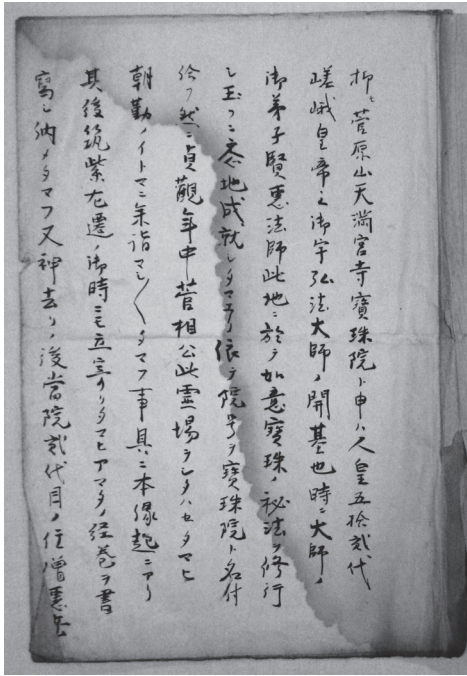 抑〻菅原山天満宮寺寶珠院ト申ハ人皇五拾貳代
嵯峨皇帝之御宇弘法大師ノ開基也時ニ大師ノ
御弟子賢惠法師此地ニ於テ如意寶珠ノ秘法ヲ修行
シ玉フニ悉地成就シタマヘリ依テ院号ヲ寶珠院ト名付
給フ然ニ貞觀年中菅相公此霊場ヲシタハセタマヒ
朝勤ノイトマニ参詣マシ〳〵タマフ事具ニ本縁起ニアリ
其後筑紫左遷ノ御時ニモ立寄リタマヒアマタノ経巻ヲ書
寫シ納メタマフ又神去リノ後當院貳代目ノ住僧惠